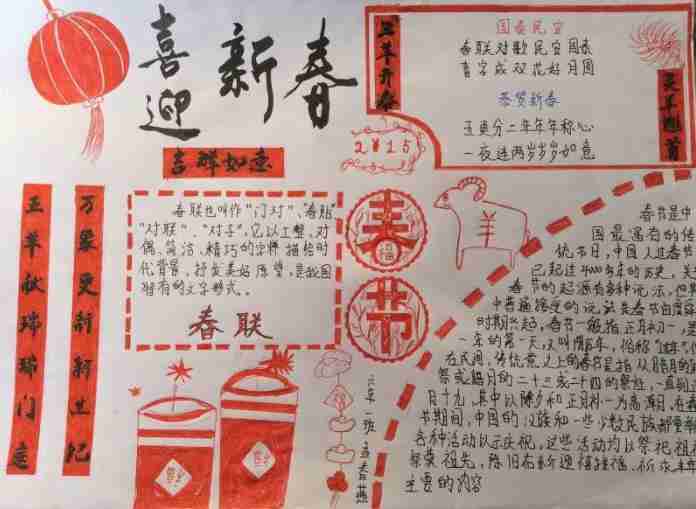 喜迎新春
三羊开泰
吉祥如意
国泰民安
春联对歌民安国泰
喜字成双花好月圆
恭贺新春
五更分二年年年称心
一夜连两岁岁岁如意
灵羊翘首
2015
万象更新新世纪
五羊献瑞瑞门庭
春联也叫作“门对”、“春贴”
“对联”、“对子”,它以工整、对
偶、简洁、精巧的字牌描绘时
代背景,抒发美好愿望,是我国
独有的文学形式。
春联
春
福
节
羊
春节是中
国最富有的传
统节日,中国人过春节
已超过4000多年的历史,关
春节的起源有多种说法,但其
中普遍接受的说法是春节由虞舜
时期兴起,春节一般指正月初一,是
一年的第一天,又叫阴历年,俗称“过年”
在民间,传统意义上的春节是指从腊月的
祭或腊月的二十三或二十四的祭灶,一直到
月十九,其中以除夕和正月初一为高潮日,在春
节期间,中国的汉族和一些少数民族都要举
各种活动以示庆祝,这些活动均以祭祀祖
祭奠祖先,除旧布新迎禧接福、祈求丰年
主要的内容
六年一班
福